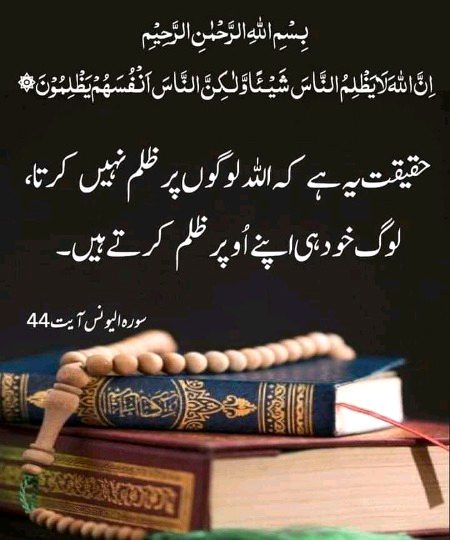 بِسْمِ اللهِ الرَّحْمٰنِ الرَّحِيْمِ
اِنَّ اللهَ لَا يَظْلِمُ النَّاسَ شَيْـًٔا وَّلٰـكِنَّ النَّاسَ اَنْفُسَهُمْ يَظْلِمُوْنَ۞
حقیقت یہ ہے کہ اللہ لوگوں پر ظلم نہیں کرتا،
لوگ خود ہی اپنے اُوپر ظلم کرتے ہیں۔
سورہ الیونس آیت 44